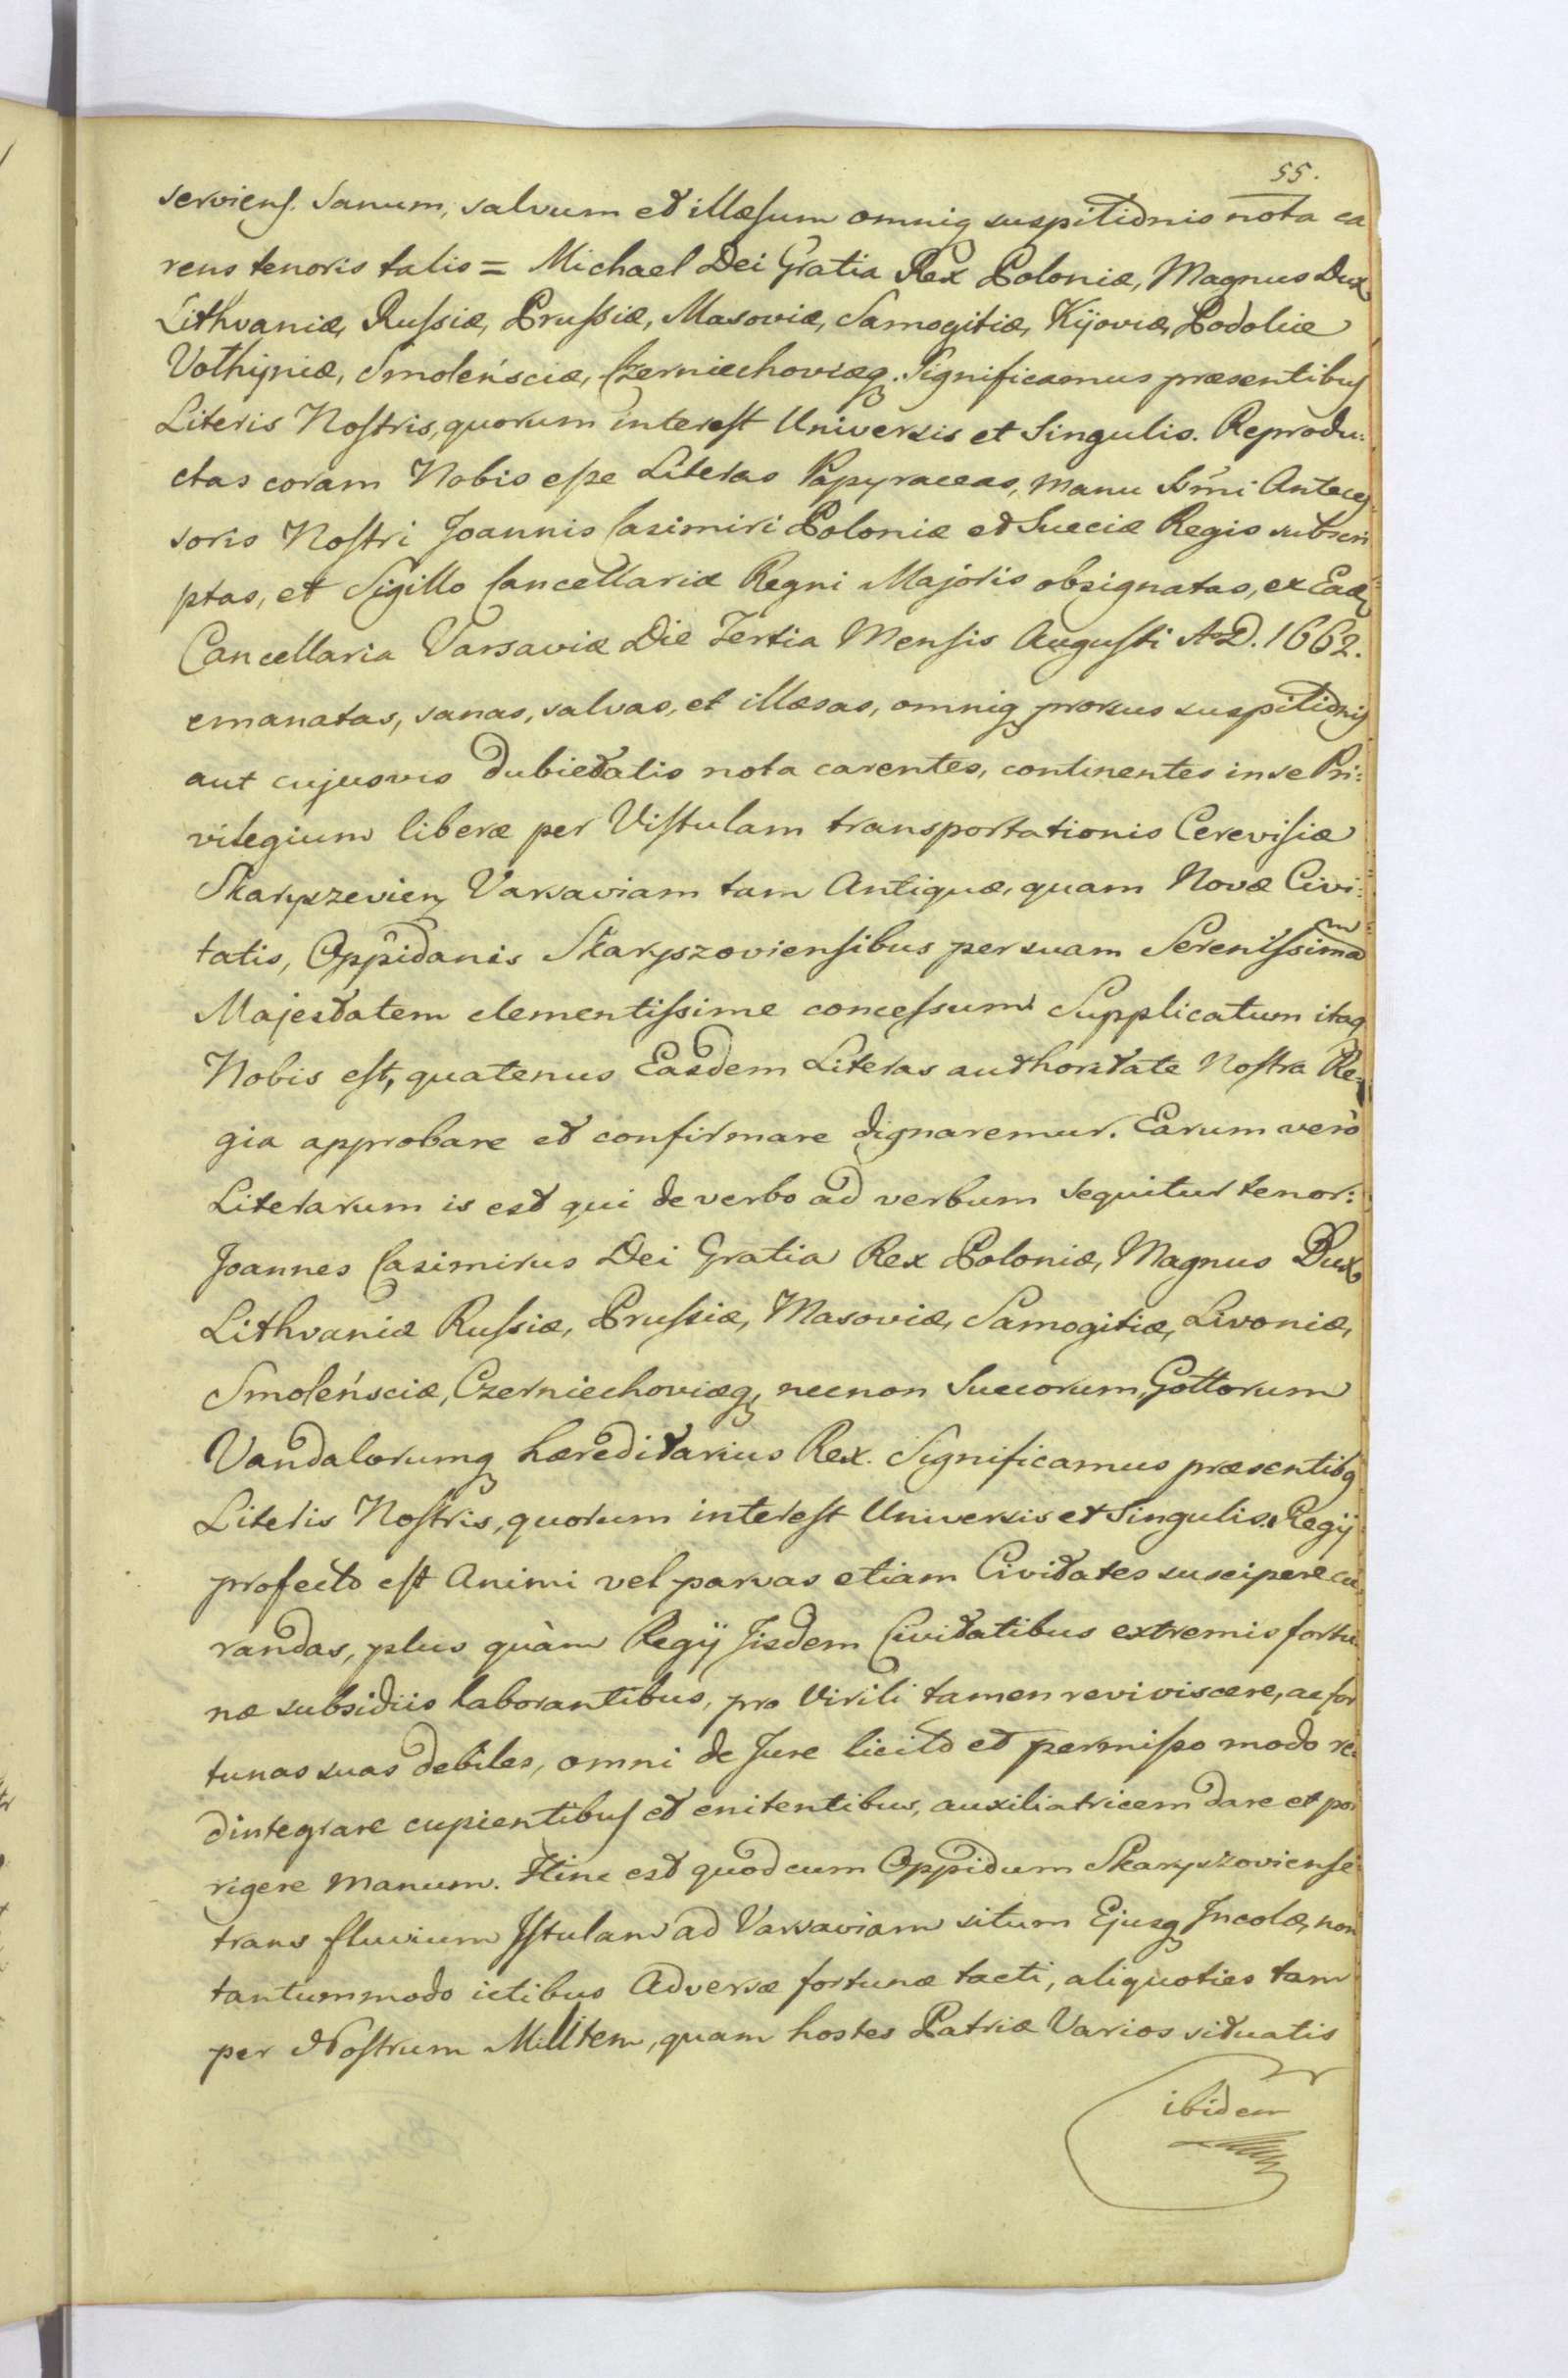 55.
serviens. Sanum, salvum et illæsum omniq suspitionis nota ca
rens tenoris talis = Michael Dei Gratia Rex Poloniæ, Magnus Dux
Lithvaniæ, Russiæ, Prussiæ, Masoviæ, Samogitiæ, Kijoviæ, Podoliæ
Volhijniæ, Smoleńsciæ, Czerniechoviæq. Significamus præsentibus
Literis Nostris, quorum interest Universis et Singulis. Reprodu:
ctas coram Nobis esse Literas Papyraceas, manu Srmi Anteces
soris Nostri Joannis Casimiri Poloniæ et Sueciæ Regis subscri
ptas, et Sigillo Cancellariæ Regni Majoris obsignatas, ex Eadē
Cancellaria Varsaviæ Die Tertia Mensis Augusti AoD. 1662.
emanatas, sanas, salvas, et illæsas, omniq prorsus suspitionis
aut cujusvis dubietatis nota carentes, continentes in se Pri:
vilegium liberæ per Vistulam transportationis Cerevisiæ
Skaryszevien Varsaviam tam Antiquæ, quam Novæ Civi:
tatis, Oppidanis Skaryszoviensibus per suam Serenissimam
Majestatem clementissime concessum Supplicatum itaq
Nobis est, quatenus Easdem Literas authoritate Nostra Re
gia approbare et confirmare dignaremur. Earum verò
Literarum is est qui de verbo ad verbum sequitur tenor:
Joannes Casimirus Dei Gratia Rex Poloniæ, Magnus Dux
Lithvaniæ Russiæ, Prussiæ, Masoviæ, Samogitiæ, Livoniæ,
Smoleńsciæ, Czerniechoviæq, necnon Suecorum, Gottorum
Vandalorumq hæreditarius Rex. Significamus præsentibq
Literis Nostris, quorum interest Universis et Singulis. Regij
profecto est Animi vel parvas etiam Civitates suscipere cu
randas, plus quàm Regij Jisdem Civitatibus extremis fortu
næ subsidiis laborantibus, pro Virili tamen reviviscere, ac for
tunas suas debiles, omni de Jure licito et permisso modo re
dintegrare cupientibus et enitentibus, auxiliatricem dare et por
rigere manum. Hinc est quod cum Oppidum Skaryszoviense
trans fluvium Jstulam ad Varsaviam situm Ejusq Jncolæ, non
tantummodo ictibus Adversæ fortunæ tacti, aliquoties tam
per Nostrum Militem, quam hostes Patriæ Varios situatis
ibidem